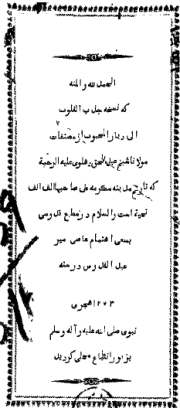 الحمد لله والمنه
که نسخه جذب القلوب
الی دیار المحبوب از مصنفات
مولانا شیخ عبدالحق دهلوی علیه الرحمة
که تاریخ مدینه سکرمه علی صاحبها الف الف
تحیة است والسلام در مطبع قدوسی
بسعی اهتمام عاصی میر
عبدالقدوس در سنه
۱۲۷۳ هجری
نبوی صلی الله علیه وآله وسلم
بزیور انطباع محلی گردید